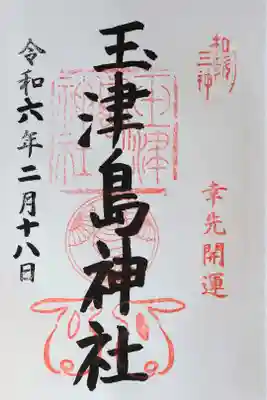 和歌三神
幸先開運
玉津島神社
令和六年二月十八日